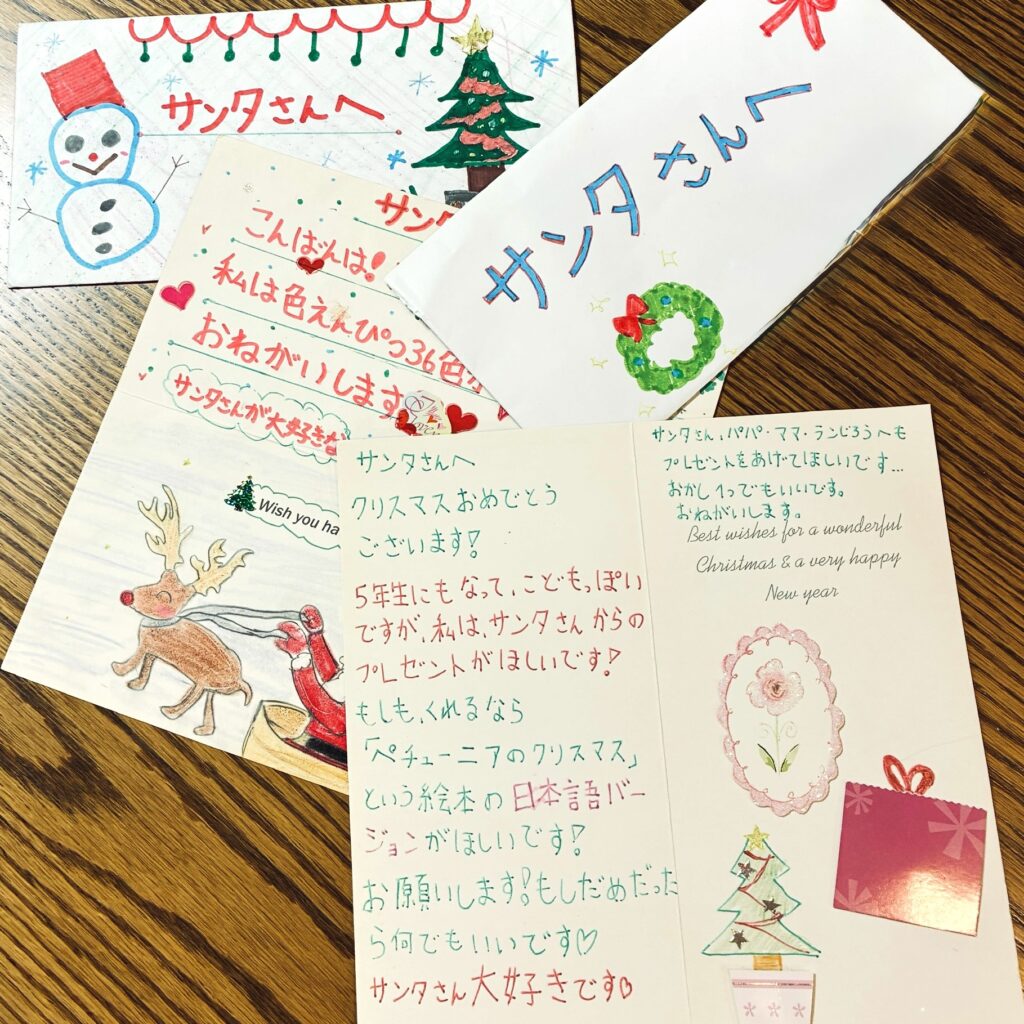 サンタさんへ
サンタさんへ
サンタ
こんばんは!
私は色えんぴつ36色
おねがいします
サンタさんが大好き
Wish you ha
サンタさんへ
クリスマスおめでとう
ございます!
5年生にもなって、こどもっぽい
ですが、私は、サンタさんからの
プレゼントがほしいです!
もしも、くれるなら
「ペチューニアのクリスマス」
という絵本の日本語バー
ジョンがほしいです!
お願いします!もしだめだった
ら何でもいいです♡
サンタさん大好きです♡
サンタさん、パパ・ママ・ランじろうへも
プレゼントをあげてほしいです...
おかし1つでもいいです。
おねがいします。
Best wishes for a wonderful
Christmas & a very happy
New year